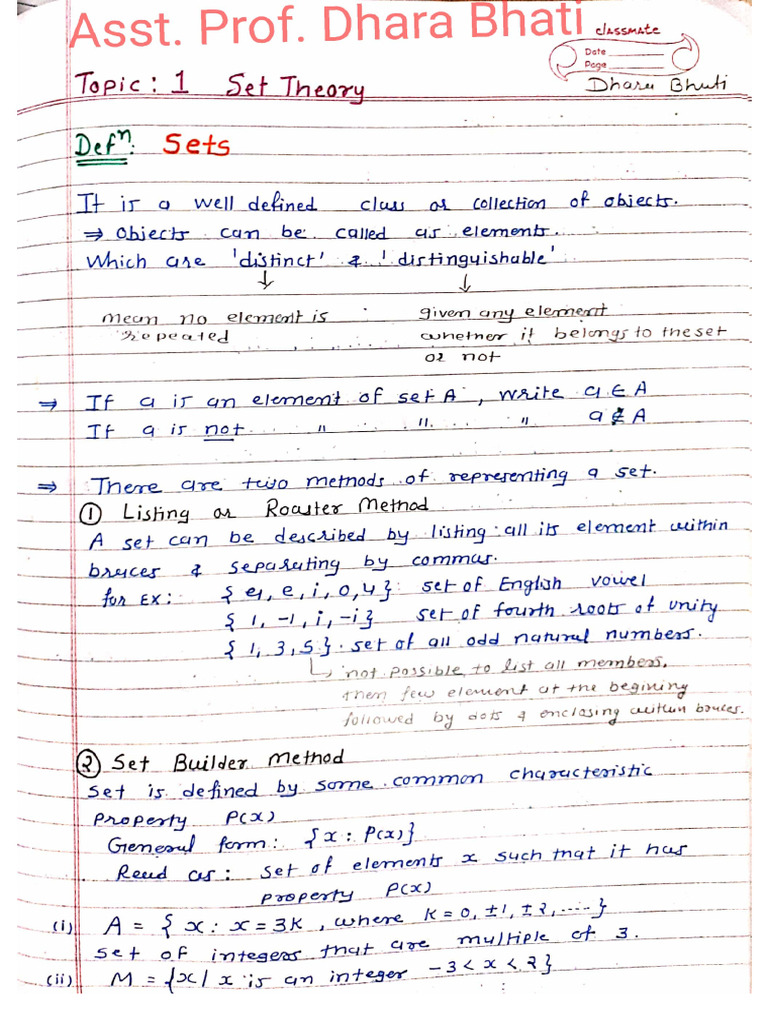 Asst. Prof. Dhara Bhati
classmate
Date
Page
Dhara Bhati
Topic: 1 Set Theory
Defn: Sets
It is a well defined class or collection of objects.
⇒ Objects can be called as elements.
Which are 'distinct' & 'distinguishable'
↓ ↓
mean no element is : given any element
repeated whether it belongs to the set
or not
⇒ If a is an element of set A, write a ∈ A
If a is not " " " a ∉ A
⇒ There are two methods of representing a set.
① Listing or Roaster Method
A set can be described by listing all its element within
braces & separating by commas.
for Ex: {a, e, i, o, u} set of English vowel
{1, -1, i, -i} set of fourth roots of unity
{1, 3, 5}. set of all odd natural numbers.
↳ not possible to list all members,
then few element at the begining
followed by dots & enclosing within braces.
② Set Builder Method
Set is defined by some common characteristic
property P(x)
General form: {x : P(x)}
Read as: set of elements x such that it has
property P(x)
(i) A = {x : x = 3k, where k = 0, ±1, ±2, .....}
set of integers that are multiple of 3.
(ii) M = {x / x is an integer -3 < x < 2}